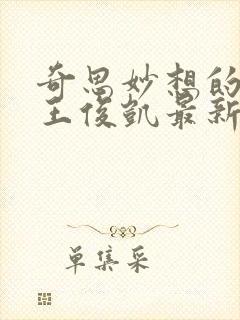 奇思妙想的
王俊凯最新
单集采